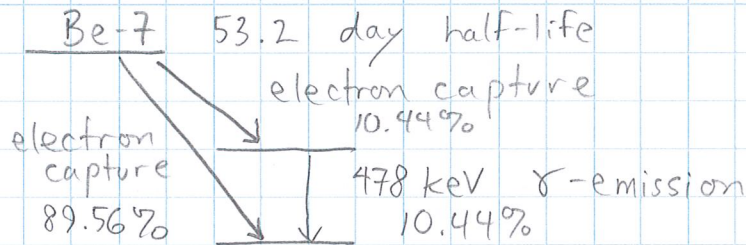 Be-7 53.2 day half-life
electron capture
10.44%
electron
capture
89.56%
478 keV γ-emission
10.44%